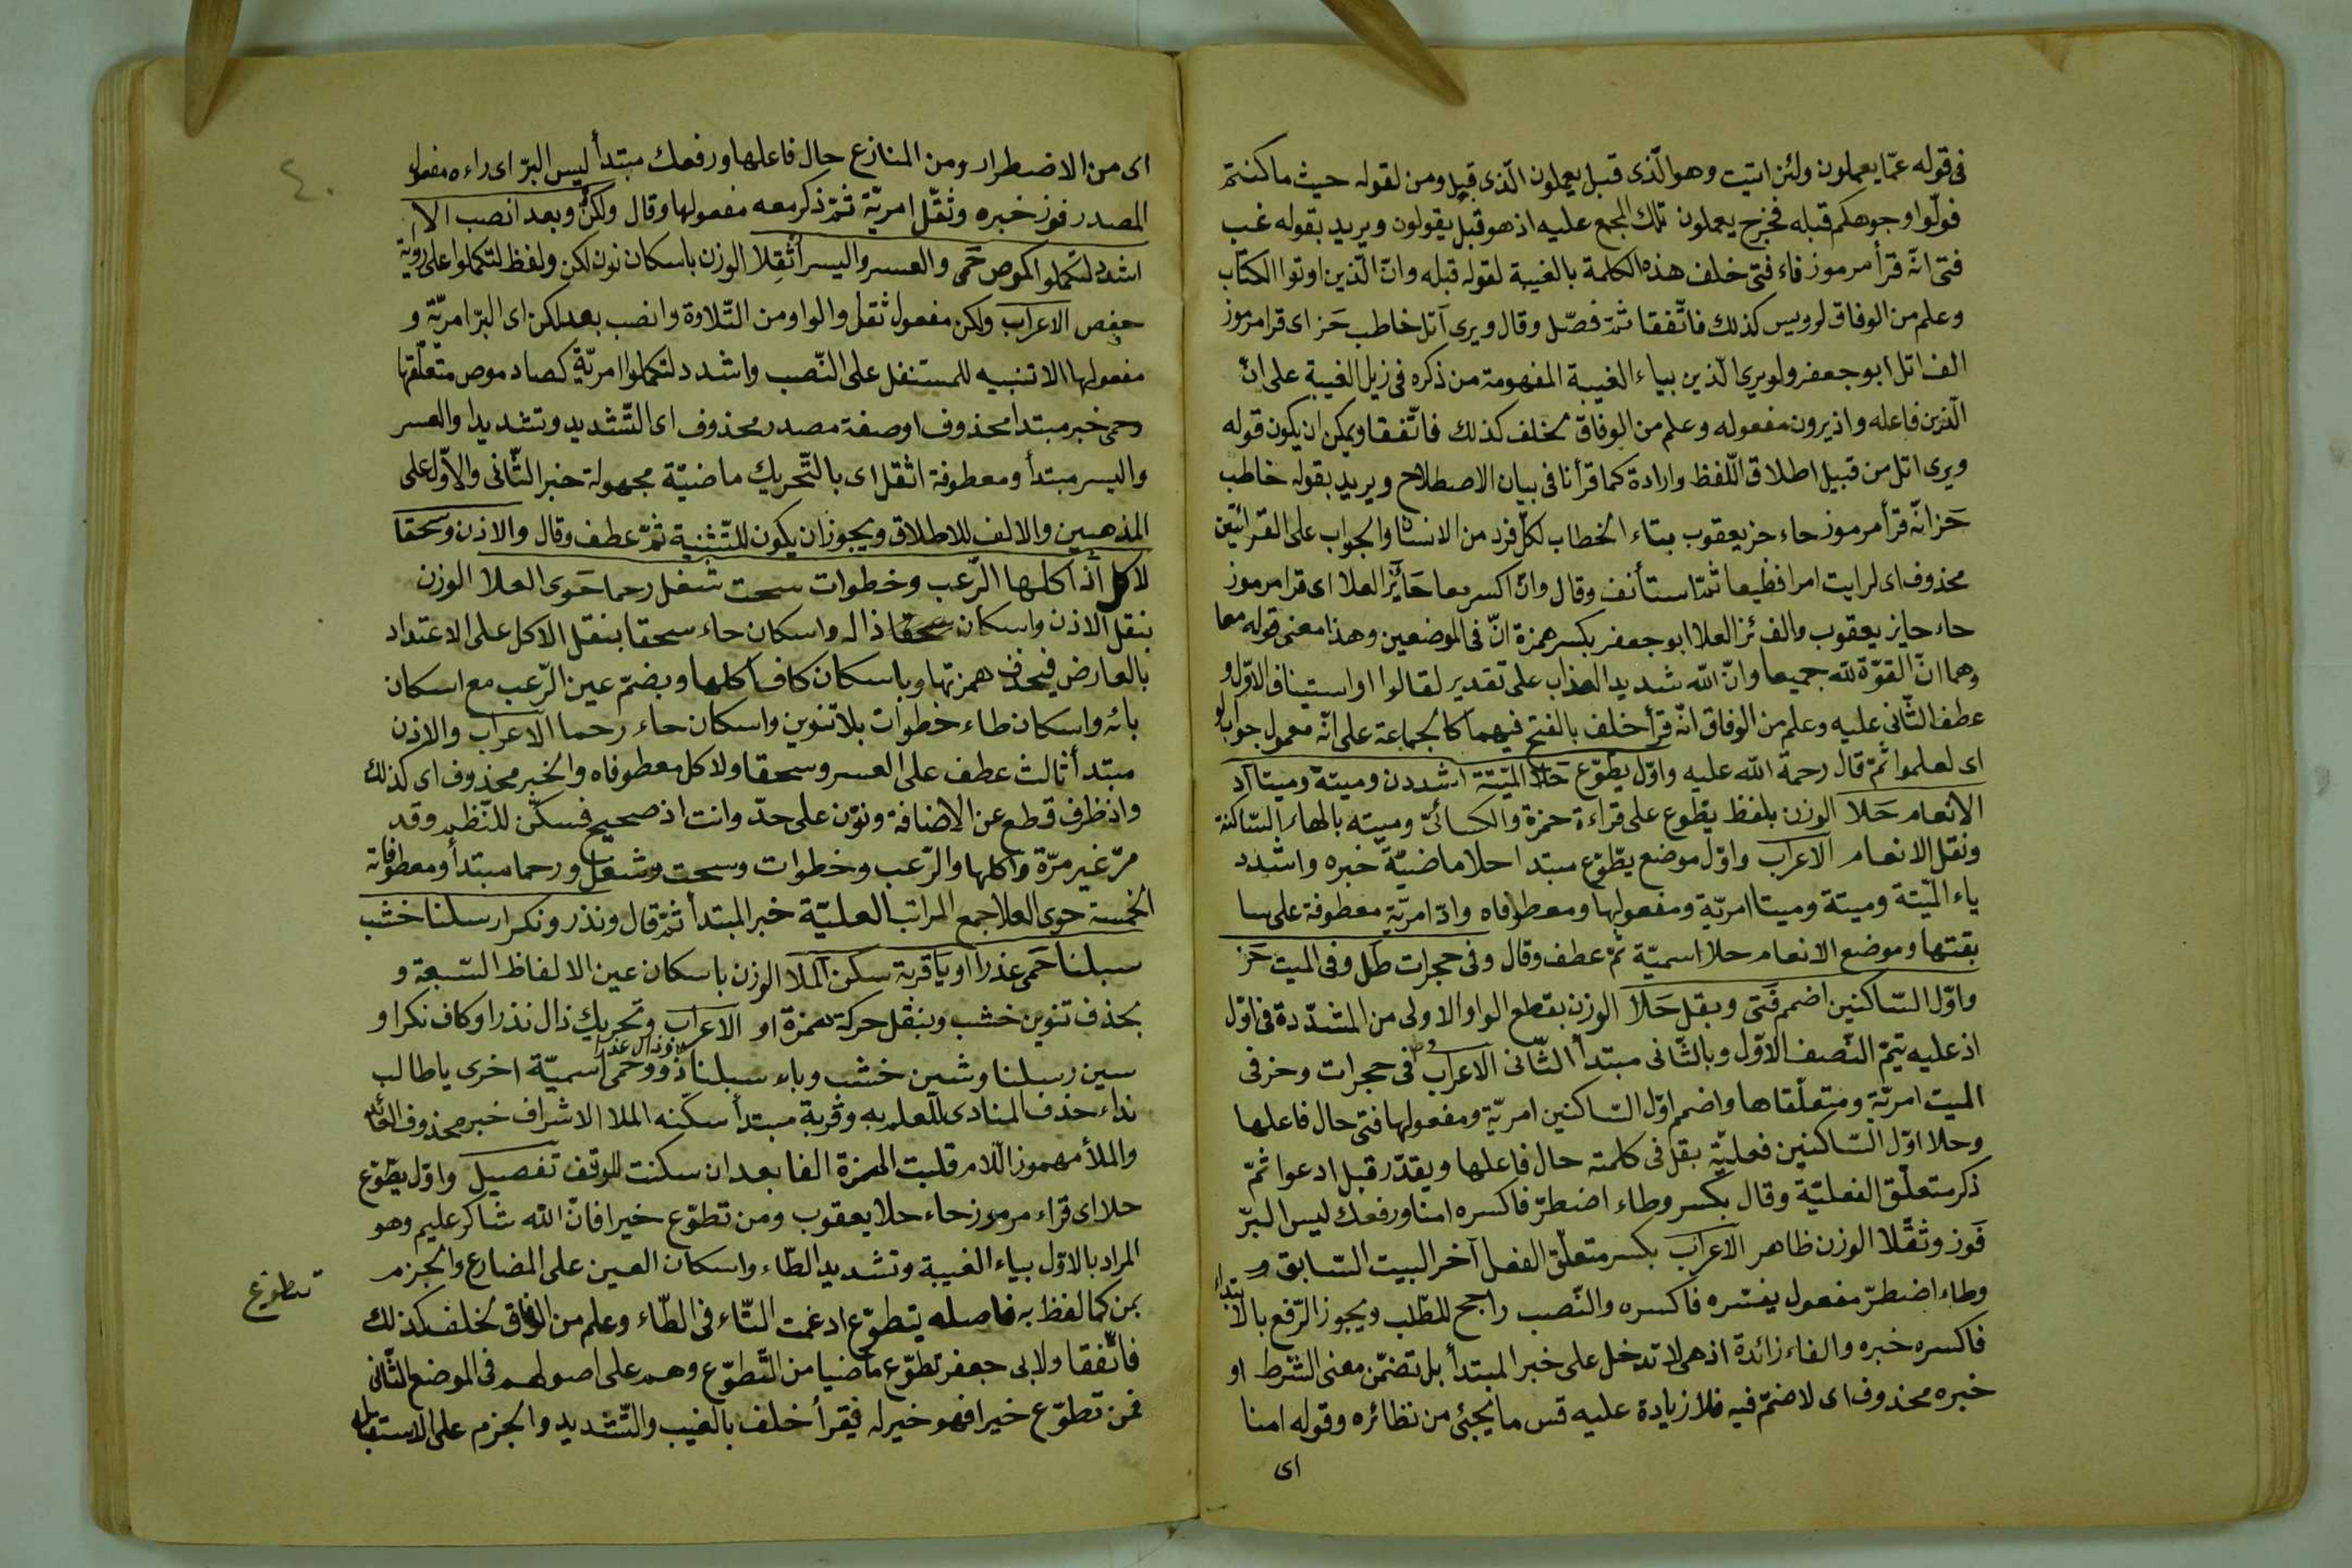 فى قوله عمّا يعملون ولئن اتيت وهو الّذى قبل يعملون الّذى قبل ومن لقوله حيث ما كنتم
فولّوا وجوهكم قبله فخرج يعملون تلك المجمع عليه اذ هو قبل يقولون ويريد بقوله غب
فتى انّه قرأ مرموز فاء فتى خلف هذه الكلمة بالغيبة لقوله قبله وانّ الّذين اوتوا الكتاب
وعلم من الوفاق لرويس كذلك فاتّفقا ثمّ فصّل وقال ويرى اتل خاطب حَز اى قرا مرموز
الف اتل ابو جعفر ولو يرى الّذين بياء الغيبة المفهومة من ذكره فى زيل الغيبة على انّ
الّذين فاعله واذ يرون مفعوله وعلم من الوفاق لخلف كذلك فاتّفقا ويمكن ان يكون قوله
ويرى اتل من قبيل اطلاق اللّفظ وارادة كما قرأنا فى بيان الاصطلاح ويريد بقوله خاطب
حَز انّه قرأ مرموز حاء حز يعقوب بتاء الخطاب لكلّ فرد من الانسان والجواب على القرائتين
محذوف اى لرايت امرا فظيعا ثمّ استأنف وقال وانّ اكسر معا حَايز العلا اى قرا مرموز
حاء حايز يعقوب والف ئز العلا ابو جعفر بكسر همزة انّ فى الموضعين وهذا معنى قوله معا
وهما انّ القوّة لله جميعا وانّ الله شديد العذاب على تقدير لقالوا او استيناف الاوّل و
عطف الثّانى عليه وعلم من الوفاق انّه قرأ خلف بالفتح فيهما كالجماعة على انّه معمول جواب لو
اى لعلموا ثمّ قال رحمة الله عليه واوّل يطّوّع حَلا الميّتة اشددن وميتة وميتا اد
الانعام حَلا الوزن بلفظ يطوع على قراءة حمزة والكسائىّ وميته بالهاء السّاكنة
ونقل الانعام الاعراب واوّل موضع يطّوّع مبتدا حلا ماضيّة خبره واشدد
ياء الميّتة وميتة وميتا امريّة ومفعولها ومعطوفاه وادّ امريّة معطوفة على سا
بقتها وموضع الانعام حلا اسميّة ثمّ عطف وقال وفى حجرات طُل وفى الميت حَز
واوّل السّاكنين اضمم فَتى وبقل حَلا الوزن بقطع الواو الاولى من المشدّدة فى اوّل
اذ عليه تيمّ النّصف الاوّل وبالثّانى مبتدأ الثّانى الاعراب وطل فى حجرات وحز فى
الميت امريّة ومتعلّقاها واضمم اوّل السّاكنين امريّة ومفعولها فتى حال فاعلها
وحلا اوّل السّاكنين فعليّة بقل فى كلمته حال فاعلها ويقدّر قبل ادعوا ثمّ
ذكر متعلّق الفعليّة وقال بكسر وطاء اضطرّ فاكسره امنا ورفعك ليس البرّ
فَوز وثقّلا الوزن ظاهر الاعراب بكسر متعلّق الفعل آخر البيت السّابق و
وطاء اضطرّ مفعول يفسّره فاكسره والنّصب راجح للطّلب ويجوز الرّفع بالابتداء
فاكسره خبره والفاء زائدة اذ هى لا تدخل على خبر المبتدأ بل تضمّن معنى الشّرط او
خبره محذوف اى لا ضمّ فيه فلا زيادة عليه قس ما يجئ من نظائره وقوله امنا
اى
٤٠
اى من الاضطرار ومن المنازع حال فاعلها ورفعك مبتدأ ليس البرّ اى راءه مفعول
المصدر فوز خبره وثقّل امريّة ثمّ ذكر معه مفعولها وقال ولكن وبعد انصب الا
اشدد لتكملوا كموص حَمى والعسر واليسر اُثقِلا الوزن باسكان نون لكن ولفظ لتكملوا على روية
حفص الاعراب ولكن مفعول ثقل والواو من التّلاوة وانصب بعد لكن اى البرّ امريّة و
مفعولها الا تنبيه للمستنفل على النّصب واشدد لتكملوا امريّة كصاد موص متعلّقها
وحمى خبر مبتدا محذوف او صفة مصدر محذوف اى التّشديد وتشديدا والعسر
واليسر مبتدأ ومعطوفة اثقل اى بالتّحريك ماضيّة مجهولة خبر الثّانى والاوّل على
المذهبين والالف للاطلاق ويجوز ان يكون للتّثنية ثمّ عطف وقال والاذن وسحقا
لاكل اذ اكلها الرّعب وخطوات سحت شغل رحما حَوى العلا الوزن
بنقل الاذن واسكان ذاله واسكان حاء سحقا بنقل الاكل على الاعتداد
بالعارض فيحذف همزتها وباسكان كاف اكلها وبضمّ عين الرّعب مع اسكان
بائه واسكان طاء خطوات بلا تنوين واسكان حاء رحما الاعراب والاذن
مبتدأ ثالث عطف على العسر وسحقا ولاكل معطوفاه والخبر محذوف اى كذلك
واذ ظرف قطع عن الاضافة ونوّن على حدّ وانت اذ صحيح فسكّن للنّظم وقد
مرّ غير مرّة واكلها والرّعب وخطوات وسحت وشغل ورحما مبتدأ ومعطوفاته
الخمسة حوى العلا جمع المراتب العليّة خبر المبتدأ ثمّ قال ونذر ونكر ارسلنا خشب
سبلنا حَمى عذرا او يا قربة سكن الملا الوزن باسكان عين الالفاظ السّبعة و
بحذف تنوين خشب وبنقل حركة همزة او الاعراب وتحريك ذال نذرا وكاف نكرا و
سين رسلنا وشين خشب وباء سبلنا وذال عذرا ذو حمى اسميّة اخرى يا طالب
نداء حذف المنادى للعلم به وقربة مبتدأ سكّنه الملا الاشراف خبر محذوف العائد
والملأ مهموز اللّام قلبت الهمزة الفا بعد ان سكنت للوقف تفصيل واوّل يطّوّع
حلا اى قراء مرموز حاء حلا يعقوب ومن تطوّع خيرا فانّ الله شاكر عليم وهو
المراد بالاوّل بياء الغيبة وتشديد الطّاء واسكان العين على المضارع والجزم
بمن كما لفظ به فاصله يتطوّع ادغمت التّاء فى الطّاء وعلم من الوفاق لخلف كذلك
تطوع
فاتّفقا ولابى جعفر تطوّع ماضيا من التّطوّع وهم على اصولهم فى الموضع الثّانى
فمن تطوّع خيرا فهو خير له فيقرأ خلف بالغيب والتّشديد والجزم على الاستقبال